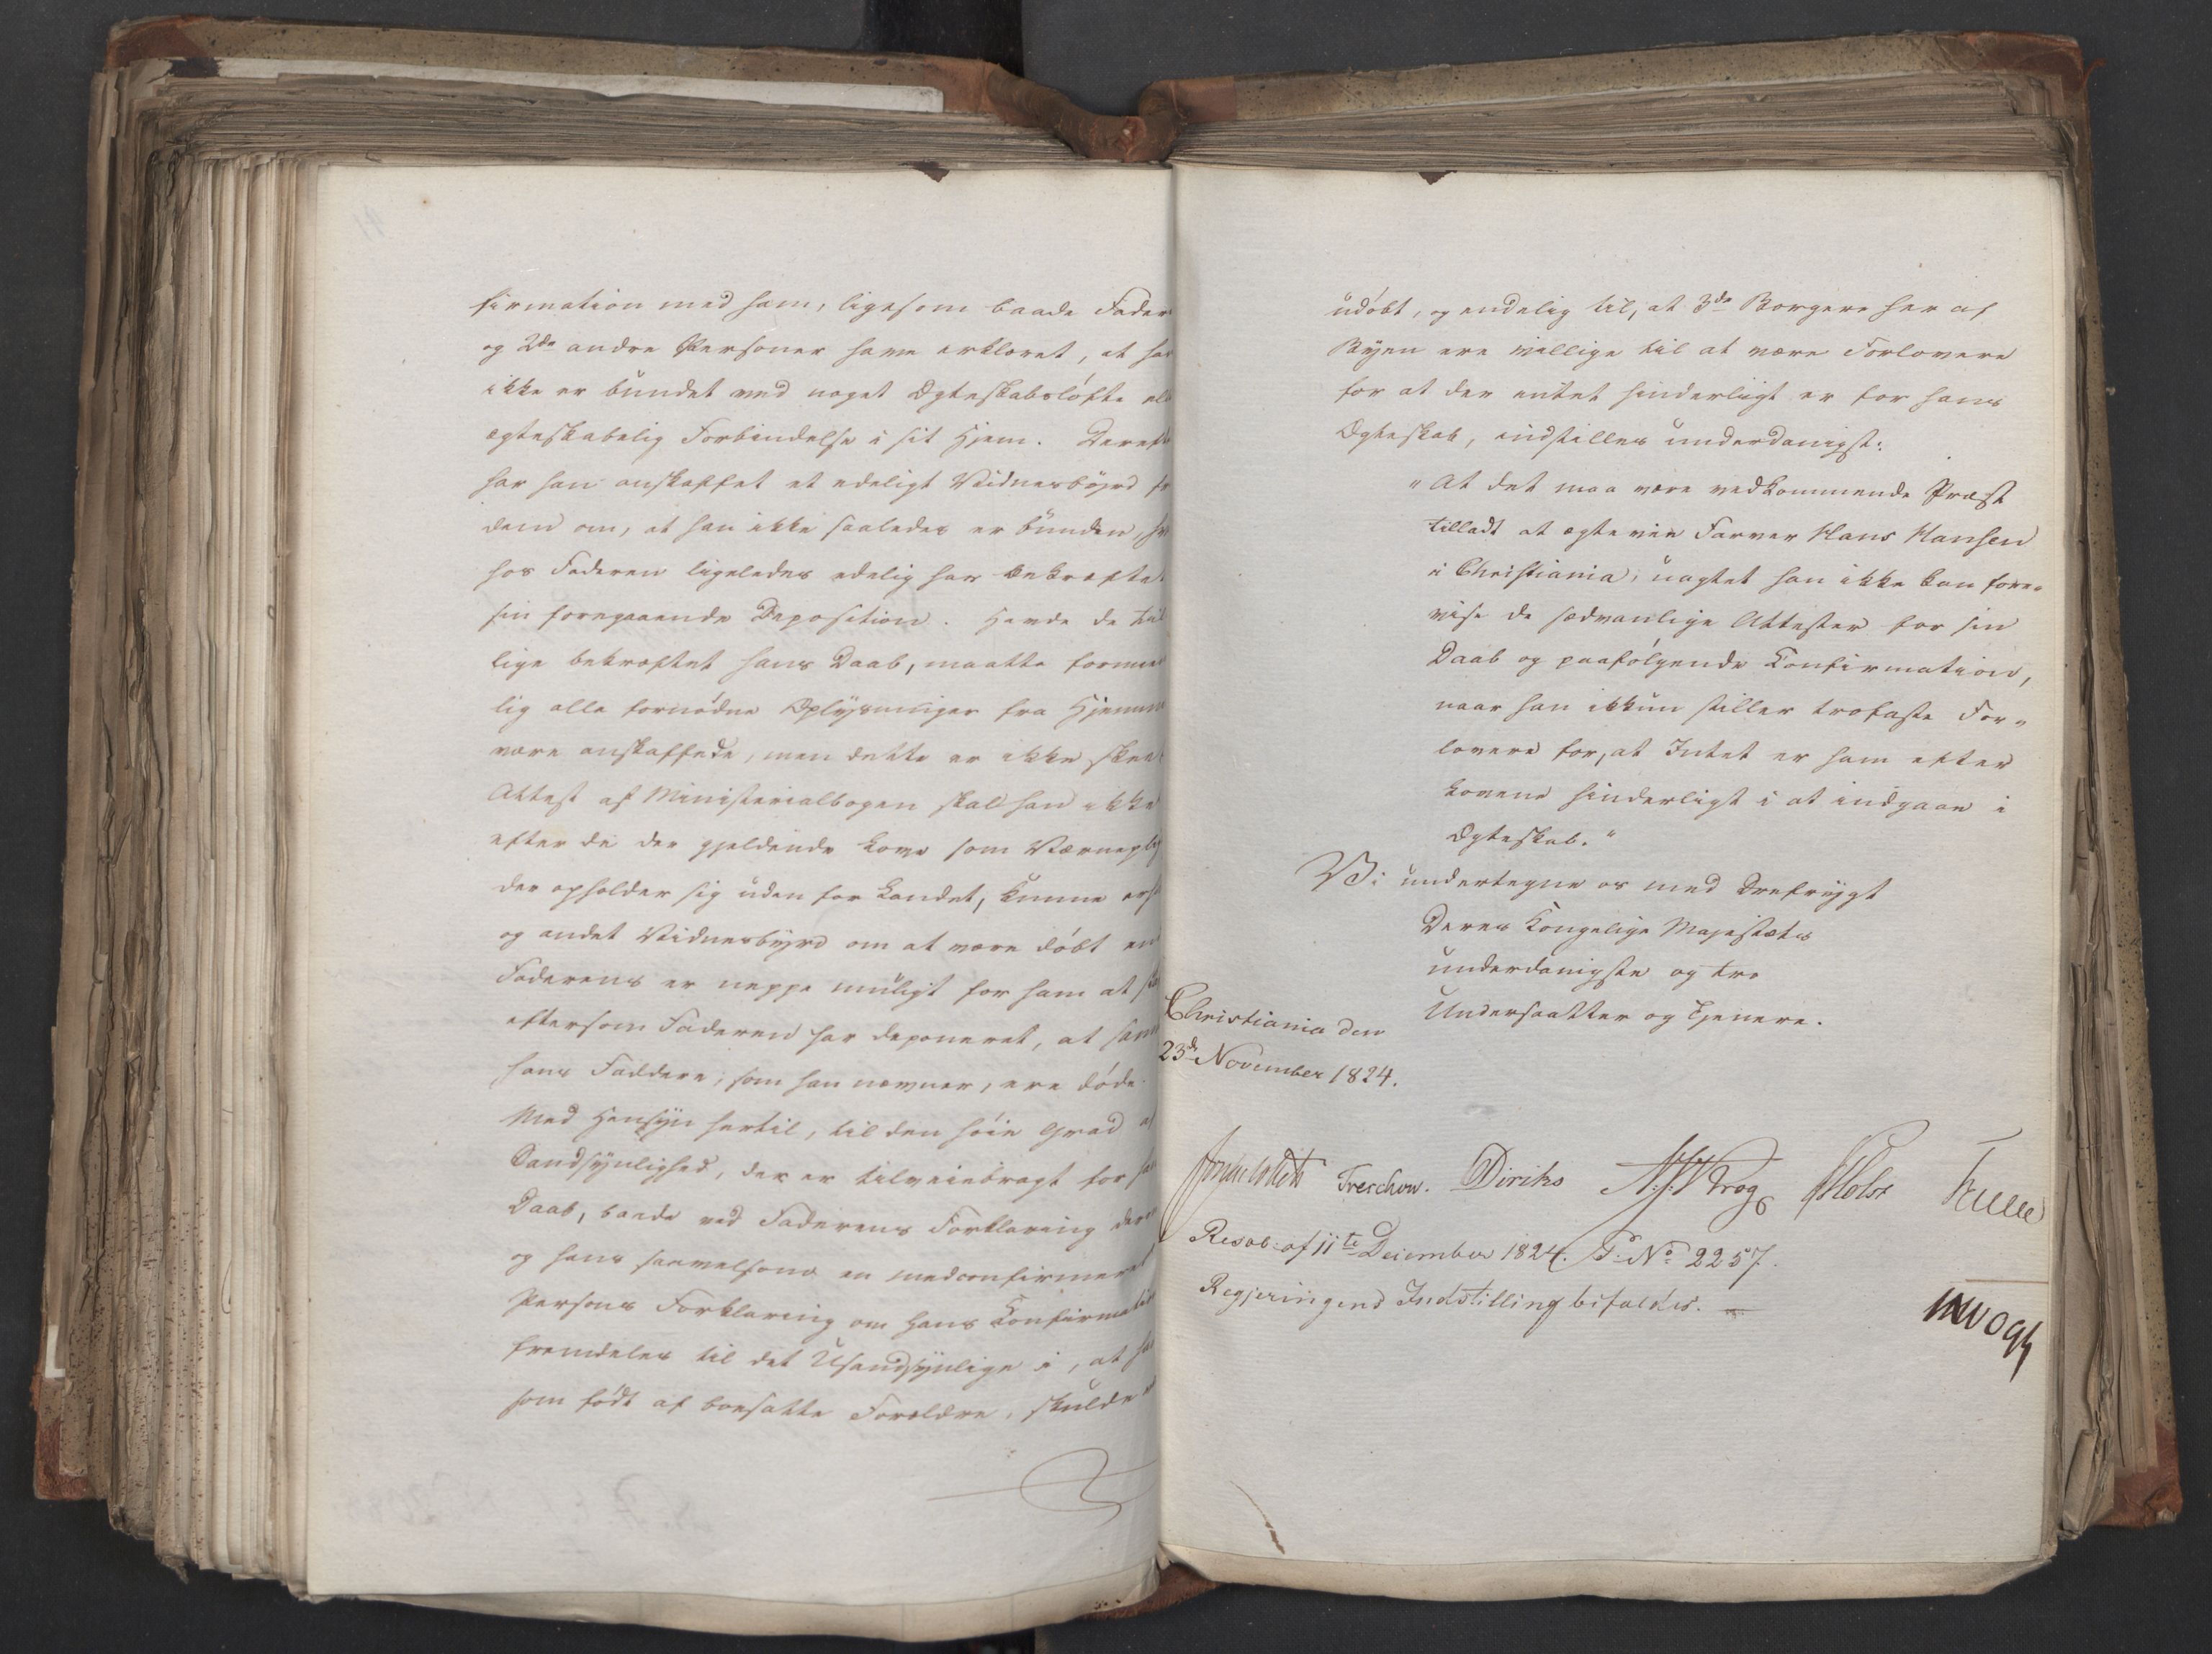 firmation med ham, ligesom baade Fader
og 2de andre Personer have erklæret, at han
ikke er bundet ved noget Ægteskabsløfte ell
ægteskabelig Forbindelse i sit Hjem. Dereft
har han anskaffet et edeligt Vidnesbÿrd fr
dem om, at han ikke saaledes er bunden, hv
hos Faderen ligeledes edelig har bekræftet
sin foregaaende Deposition. Havde de
lige bekræftet hans Daab, maatte formee
lig alle fornødne Oplÿsninger fra Hjemme
være anskaffede, men dette er ikke skeet
Attest af Ministerialbogen skal han ikke
efter de der gjeldende Love som Værneplig
der opholder sig uden for Landet, kunne erh
og andet Vidnesbÿrd om at være døbt end
Faderens er neppe muligt for ham at
eftersom Faderen har deponeret, at
hans Faddere, som han nævner, ere døde.
Med Hensÿn hertil, til den høie Grad af
Sandsÿnlighed, der er tilveiebragt for han
Daab, baade ved Faderens Forklaring derom
og hans saavelsom en medconfirmeret
Persons Forklaring om hans Confirmation
fremdeles til det Usandsÿnlige i, at han
som født af boesatte Forældre, skulde
udøbt, og endelig til, at 3de Borgere her af
Bÿen ere villige til at være Forlovere
for at der intet hinderligt er for hans
Ægteskab, indstilles underdanigst:
"At det maa være vedkommende Præst
tilladt at ægtevie Farver Hans Hansen
i Christiania, uagtet han ikke kan fore-
vise de sædvanlige Attester for sin
Daab og paafølgende Confirmation,
naar han ikkun stiller trofaste For-
lovere for, at Intet er ham efter
Lovene hinderligt i at indgaae i
Ægteskab."
Vi undertegne os med Ærefrÿgt
Deres Kongelige Majestæts
underdanigste og tro
Undersaatter og Tjenere.
Christiania den
23de November 1824.
Treschow. Diriks Krog Holst
Resol. af 11te December 1824. P. No 2257.
Regjeringens Indstilling bifaldes.
Vogt